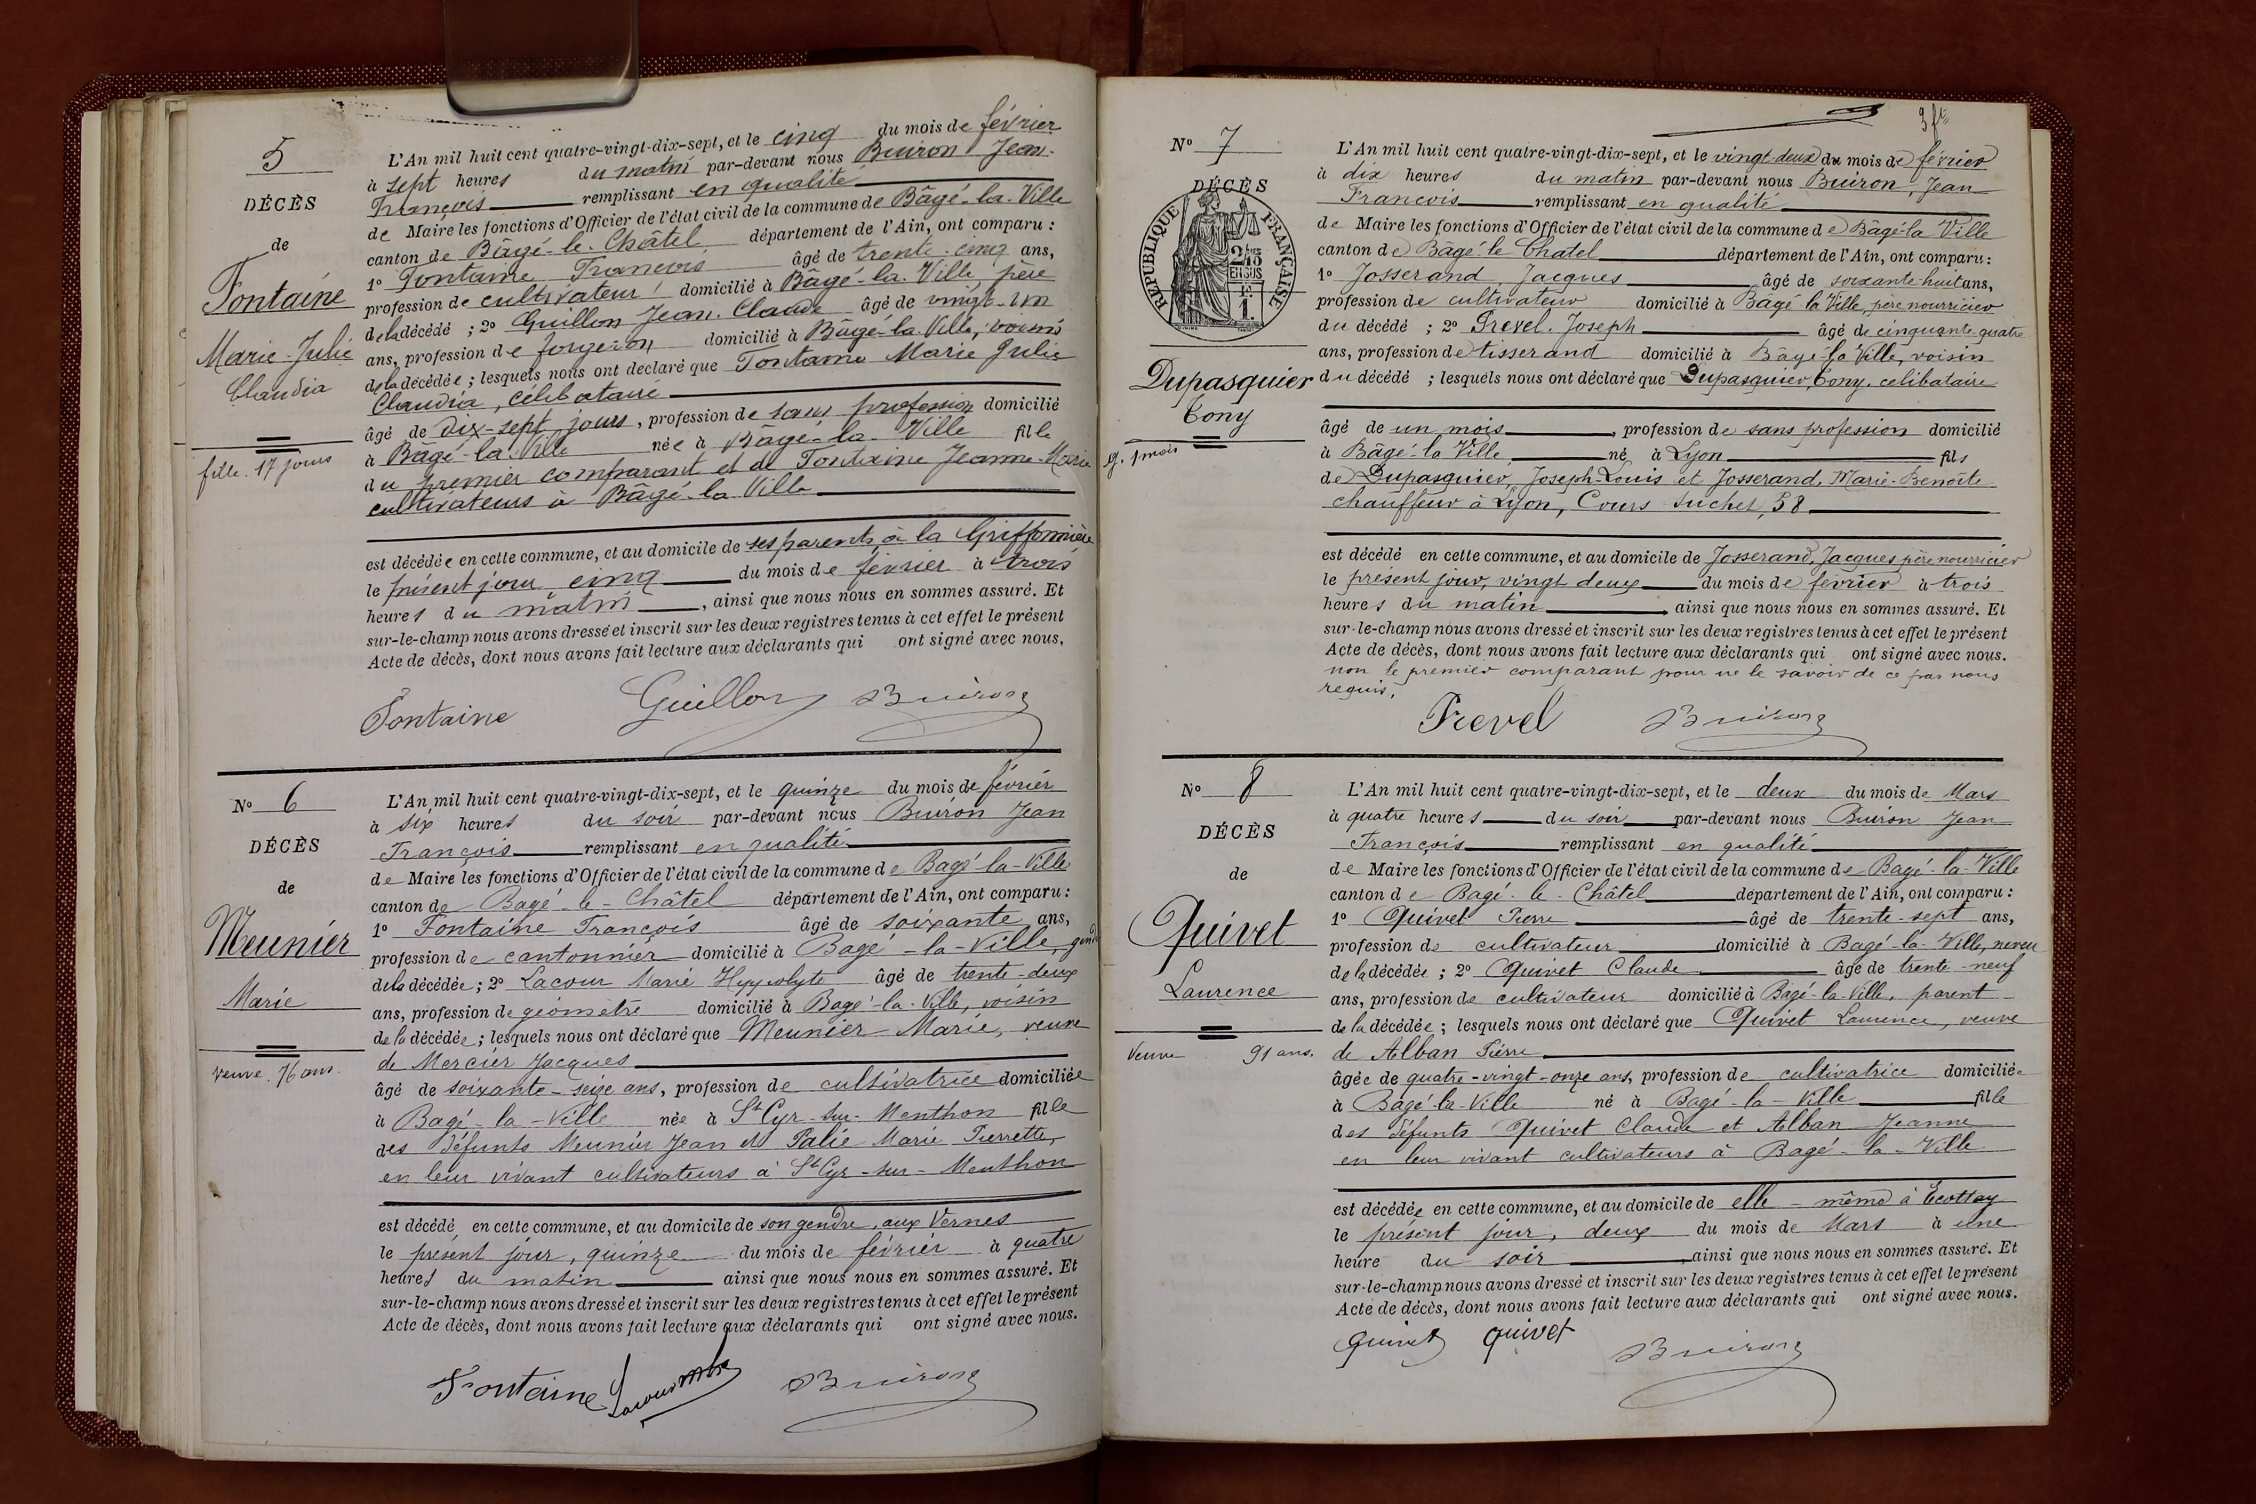 5
DÉCÈS
de
Fontaine
Marie-Julie
Claudia
fille. 17 jours
L'An mil huit cent quatre-vingt-dix-sept, et le cinq du mois de février
à sept heures du matin par-devant nous Buiron Jean-
François remplissant en qualité
de Maire les fonctions d'Officier de l'état civil de la commune de Bâgé-la-Ville
canton de Bâgé-le-Châtel département de l'Ain, ont comparu :
1º Fontaine François âgé de trente-cinq ans,
profession de cultivateur domicilié à Bâgé-la-Ville père
de la décédé ; 2º Guillon Jean-Claude âgé de vingt-un
ans, profession de forgeron domicilié à Bâgé-la-Ville, voisin
de la décédée ; lesquels nous ont déclaré que Fontaine Marie Julie
Claudia, célibataire
âgé de dix-sept jours, profession de sans profession domicilié
à Bâgé-la-Ville née à Bâgé-la-Ville fille
du premier comparant et de Fontaine Jeanne-Marie
cultivateurs à Bâgé-la-Ville
est décédée en cette commune, et au domicile de ses parents à la Griffonnière
le présent jour cinq du mois de février à trois
heures du matin, ainsi que nous nous en sommes assuré. Et
sur-le-champ nous avons dressé et inscrit sur les deux registres tenus à cet effet le présent
Acte de décès, dont nous avons fait lecture aux déclarants qui ont signé avec nous.
Fontaine Guillon Buiron
Nº 6
DÉCÈS
de
Meunier
Marie
veuve. 76 ans.
L'An mil huit cent quatre-vingt-dix-sept, et le quinze du mois de février
à six heures du soir par-devant nous Buiron Jean
François remplissant en qualité
de Maire les fonctions d'Officier de l'état civil de la commune de Bagé-la-Ville
canton de Bagé-le-Châtel département de l'Ain, ont comparu :
1º Fontaine François âgé de soixante ans,
profession de cantonnier domicilié à Bagé-la-Ville, gendre
de la décédée ; 2º Lacour Marie Hyppolyte âgé de trente-deux
ans, profession de géomètre domicilié à Bagé-la-Ville, voisin
de la décédée ; lesquels nous ont déclaré que Meunier Marie, veuve
de Mercier Jacques
âgé de soixante-seize ans, profession de cultivatrice domiciliée
à Bagé-la-Ville née à St Cyr-sur-Menthon fille
des défunts Meunier Jean et Palie Marie Pierrette,
en leur vivant cultivateurs à St Cyr-sur-Menthon
est décédé en cette commune, et au domicile de son gendre, aux Vernes
le présent jour, quinze du mois de février à quatre
heures du matin ainsi que nous nous en sommes assuré. Et
sur-le-champ nous avons dressé et inscrit sur les deux registres tenus à cet effet le présent
Acte de décès, dont nous avons fait lecture aux déclarants qui ont signé avec nous.
Fontaine Lacour Buiron
Nº 7
DÉCÈS
RÉPUBLIQUE FRANÇAISE
Dupasquier
Tony
g. 1 mois
L'An mil huit cent quatre-vingt-dix-sept, et le vingt-deux du mois de février
à dix heures du matin par-devant nous Buiron, Jean
François remplissant en qualité
de Maire les fonctions d'Officier de l'état civil de la commune de Bâgé-la-Ville
canton de Bâgé-le Chatel département de l'Ain, ont comparu :
1º Josserand, Jacques âgé de soixante-huit ans,
profession de cultivateur domicilié à Bâgé la Ville, père nourricier
du décédé ; 2º Prevel. Joseph âgé de cinquante-quatre
ans, profession de tisserand domicilié à Bâgé-la Ville, voisin
du décédé ; lesquels nous ont déclaré que Dupasquier, Tony. celibataire
âgé de un mois, profession de sans profession domicilié
à Bâgé-la Ville né à Lyon fils
de Dupasquier, Joseph-Louis et Josserand, Marie-Benoîte
chauffeur à Lyon, Cours Suchet, 58
est décédé en cette commune, et au domicile de Josserand, Jacques père nourricier
le présent jour, vingt deux du mois de février à trois
heures du matin, ainsi que nous nous en sommes assuré. Et
sur-le-champ nous avons dressé et inscrit sur les deux registres tenus à cet effet le présent
Acte de décès, dont nous avons fait lecture aux déclarants qui ont signé avec nous.
non le premier comparant pour ne le savoir de ce par nous
requis.
Prevel Buiron
Nº 8
DÉCÈS
de
Quivet
Laurence
Veuve 91 ans.
L'An mil huit cent quatre-vingt-dix-sept, et le deux du mois de Mars
à quatre heures du soir par-devant nous Buiron Jean
François remplissant en qualité
de Maire les fonctions d'Officier de l'état civil de la commune de Bagé-la-Ville
canton de Bagé-le-Châtel département de l'Ain, ont comparu :
1º Quivet Pierre âgé de trente-sept ans,
profession de cultivateur domicilié à Bagé-la-Ville, neveu
de la décédée ; 2º Quivet Claude âgé de trente-neuf
ans, profession de cultivateur domicilié à Bagé-la-Ville, parent
de la décédée ; lesquels nous ont déclaré que Quivet Laurence, veuve
de Alban Pierre
âgée de quatre-vingt-onze ans, profession de cultivatrice domiciliée
à Bagé-la-Ville né à Bagé-la-Ville fille
des défunts Quivet Claude et Alban Jeanne
en leur vivant cultivateurs à Bagé-la-Ville
est décédée en cette commune, et au domicile de elle-même à Ecottay
le présent jour, deux du mois de Mars à une
heure du soir ainsi que nous nous en sommes assuré. Et
sur-le-champ nous avons dressé et inscrit sur les deux registres tenus à cet effet le présent
Acte de décès, dont nous avons fait lecture aux déclarants qui ont signé avec nous.
quivet quivet Buiron